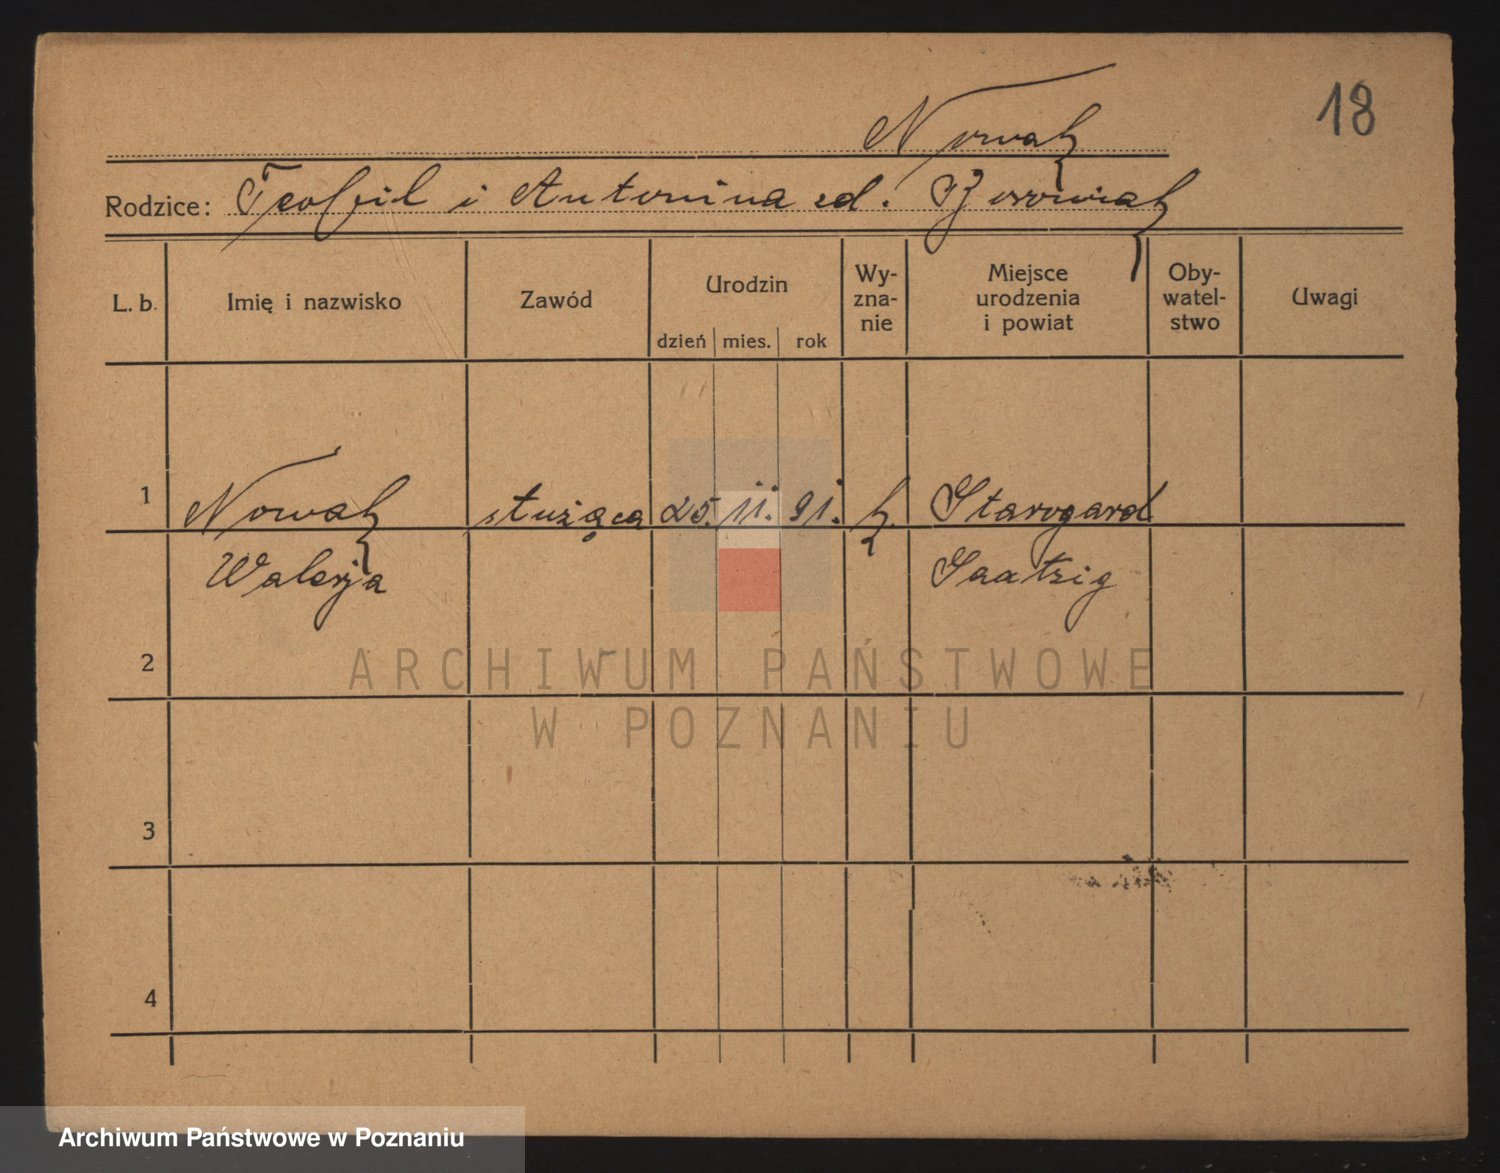 18
Nowak
Rodzice: Teofil i Antonina zd. Borowiak
L. b. Imię i nazwisko Zawód Urodzin Wy-zna-nie Miejsce urodzenia i powiat Oby-watel-stwo Uwagi
dzień mies. rok
1 Nowak służąca 25. 11. 91. k. Starogard
Walerja Saatzig
2
ARCHIWUM PAŃSTWOWE
W POZNANIU
3
4
Archiwum Państwowe w Poznaniu